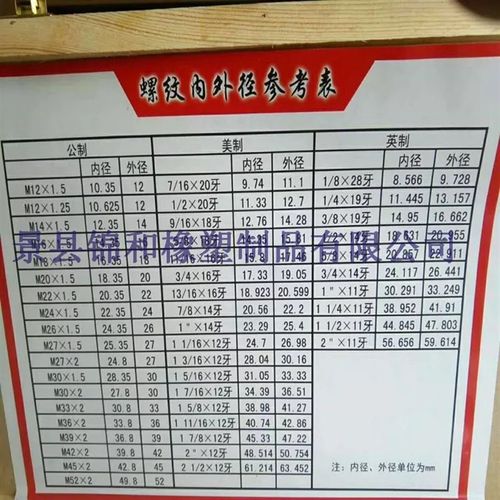 螺纹内外径参考表
公制 美制 英制
内径 外径 内径 外径 内径 外径
M12×1.5 10.35 12 7/16×20牙 9.74 11.1 1/8×28牙 8.566 9.728
M12×1.25 10.625 12 1/2×20牙 11.33 12.7 1/4×19牙 11.445 13.157
M14×1.5 12.35 14 9/16×18牙 12.76 14.28 3/8×19牙 14.95 16.662
景县锦和橡塑制品有限公司
20.955
22.911
M20×1.5 18.35 20 3/4×16牙 17.33 19.05 3/4×14牙 24.117 26.441
M22×1.5 20.35 22 13/16×16牙 18.923 20.599 1"×11牙 30.291 33.249
M24×1.5 22.35 24 7/8×14牙 20.56 22.2 1 1/4×11牙 38.952 41.91
M26×1.5 24.35 26 1"×14牙 23.29 25.4 1 1/2×11牙 44.845 47.803
M27×1.5 25.35 27 1 1/16×12牙 24.7 26.98 2"×11牙 56.656 59.614
M27×2 24.8 27 1 3/16×12牙 28.04 30.16
M30×1.5 28.35 30 1 5/16×12牙 31.05 33.33
M30×2 27.8 30 1 7/16×12牙 34.39 36.51
M33×2 30.8 33 1 5/8×12牙 38.98 41.27
M36×2 33.8 36 1 11/16×12牙 40.74 42.86
M39×2 36.8 39 1 7/8×12牙 45.33 47.22
M42×2 39.8 42 2"×12牙 48.514 50.754
M45×2 42.8 45 2 1/2×12牙 61.214 63.452
M52×2 49.8 52
注：内径、外径单位为mm